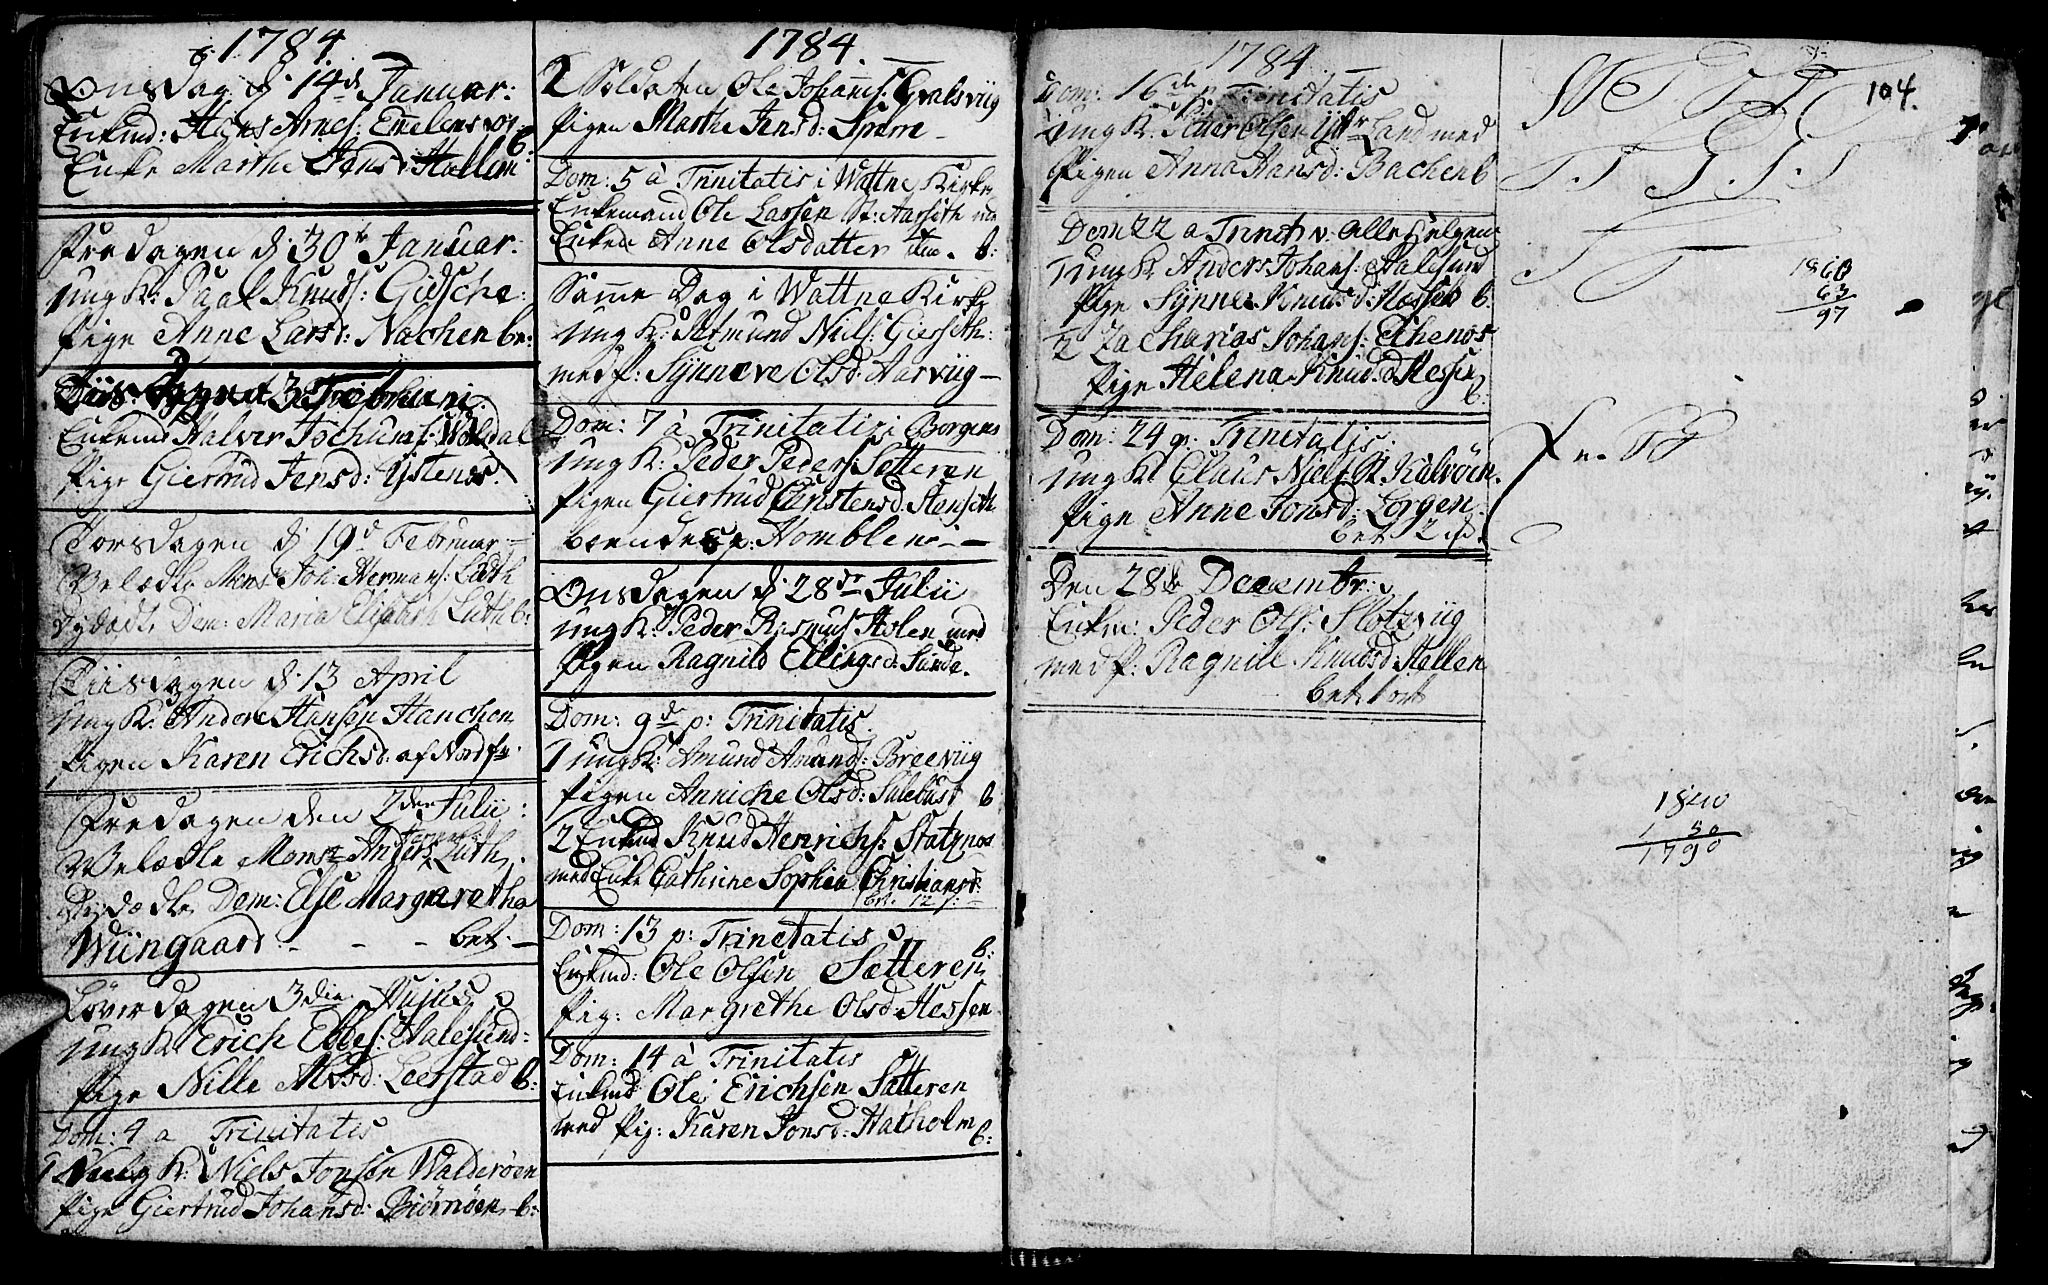 1784.
Onsdag d: 14de Januar:
Enkmd: Hans Arnes: Emelens
Enke Marthe Hallem
b:
Fredagen d: 30te Januar:
Ung K: Paal Knuds: Gidsche
Pige Anne Larsd: Nachen be:
Tiisdagen d 3 Februari
Enkemd Halver Jochums: Woldal
Pige Giertrud Jensd: Ystenes.
Torsdagen d 19d Februar
Velædle Monsr Joh: Hermans: Luth
Dydædle Dem: Maria Elisabeth Luth b:
Tiisdagen d: 13 April
Ung K: Anders Hansen Hanchen
Pigen Karen Erichsd: af Nordf:
Fredagen den 2den Julii:
Velædle Monsr Anders Luth
Dydædle Dem: Else Margaretha
Wiingaard - - - bet. -
Löverdagen 3die Hujus
Ung K Erich Ebbes: Aalesund:
Pige Nille Leerstad b:
Dom: 4 a Trinitatis
1 Ung K: Niels Jonsen Walderöen
Pige Giertrud Johansd: Biörnöen b:
1784.
2 Soldaten Ole Johans: Gralsviig
Pigen Marthe Jensd: Sperre -
Dom: 5 à Trinitatis i Wattne Kirke
Enkemand Ole Lassen St: Aarseth med
Enken Anne Olsdatter item. b:
Samme Dag i Wattne Kirke
Ung K: Aamund Niels: Gierseth:
med P: Synneve Olsd: Aarviig -
Dom: 7 à Trinitatis i Borgens
Ung K: Peder Peders: Sætteren
Pigen Giertrud Christensd: Hanseth
boende p: Homblen - -
Onsdagen d: 28de Julii
Ung K: Peder Rasmus Holen med
Pigen Ragnild Ellingsd: Sunde.
Dom: 9de p: Trinitatis.
1 Ung K: Amund Amunds: Breeviig
Pigen Anniche Olsd: Sulebust b
2 Enkmd Knud Henrichs: Statznes
med Enke Cathrine Sophia Christiansd:
bet. 12 s: -
Dom: 13 p: Trinitatis
Enkmd: Ole Olsen Sætteren
b:
Pig: Margrethe Olsd: Hessen
Dom: 14 à Trinitatis
Enkmd Ole Erichsen Sætteren
med Pig: Karen Jonsd: Hatholm
b:
1784.
Dom: 16de p. Trinitatis
Ung K: Peder Olsen Land med
Pigen Anna Hansd: Bachen b
Dom 22 a Trinit v: alle Helgens
1 Ung K Anders Johans: Aalesund
Pige Synnev Knudsd: Hessen b:
2 Zacharias Johans: Ethenes
Pige Helena Knudsd Hessen
b:
Dom: 24 p: Trinitatis:
Ung K Claus Niels: St. Kalvöen.
Pige Anne Jonsd: Lorgen
bet 2
Den 28de Decembr:
Enkm: Peder Ols: Slotzviig
med P: Ragnild Knudsd: Hallen
bet 1 ort
104.
1860
63
97
1840
50
1790